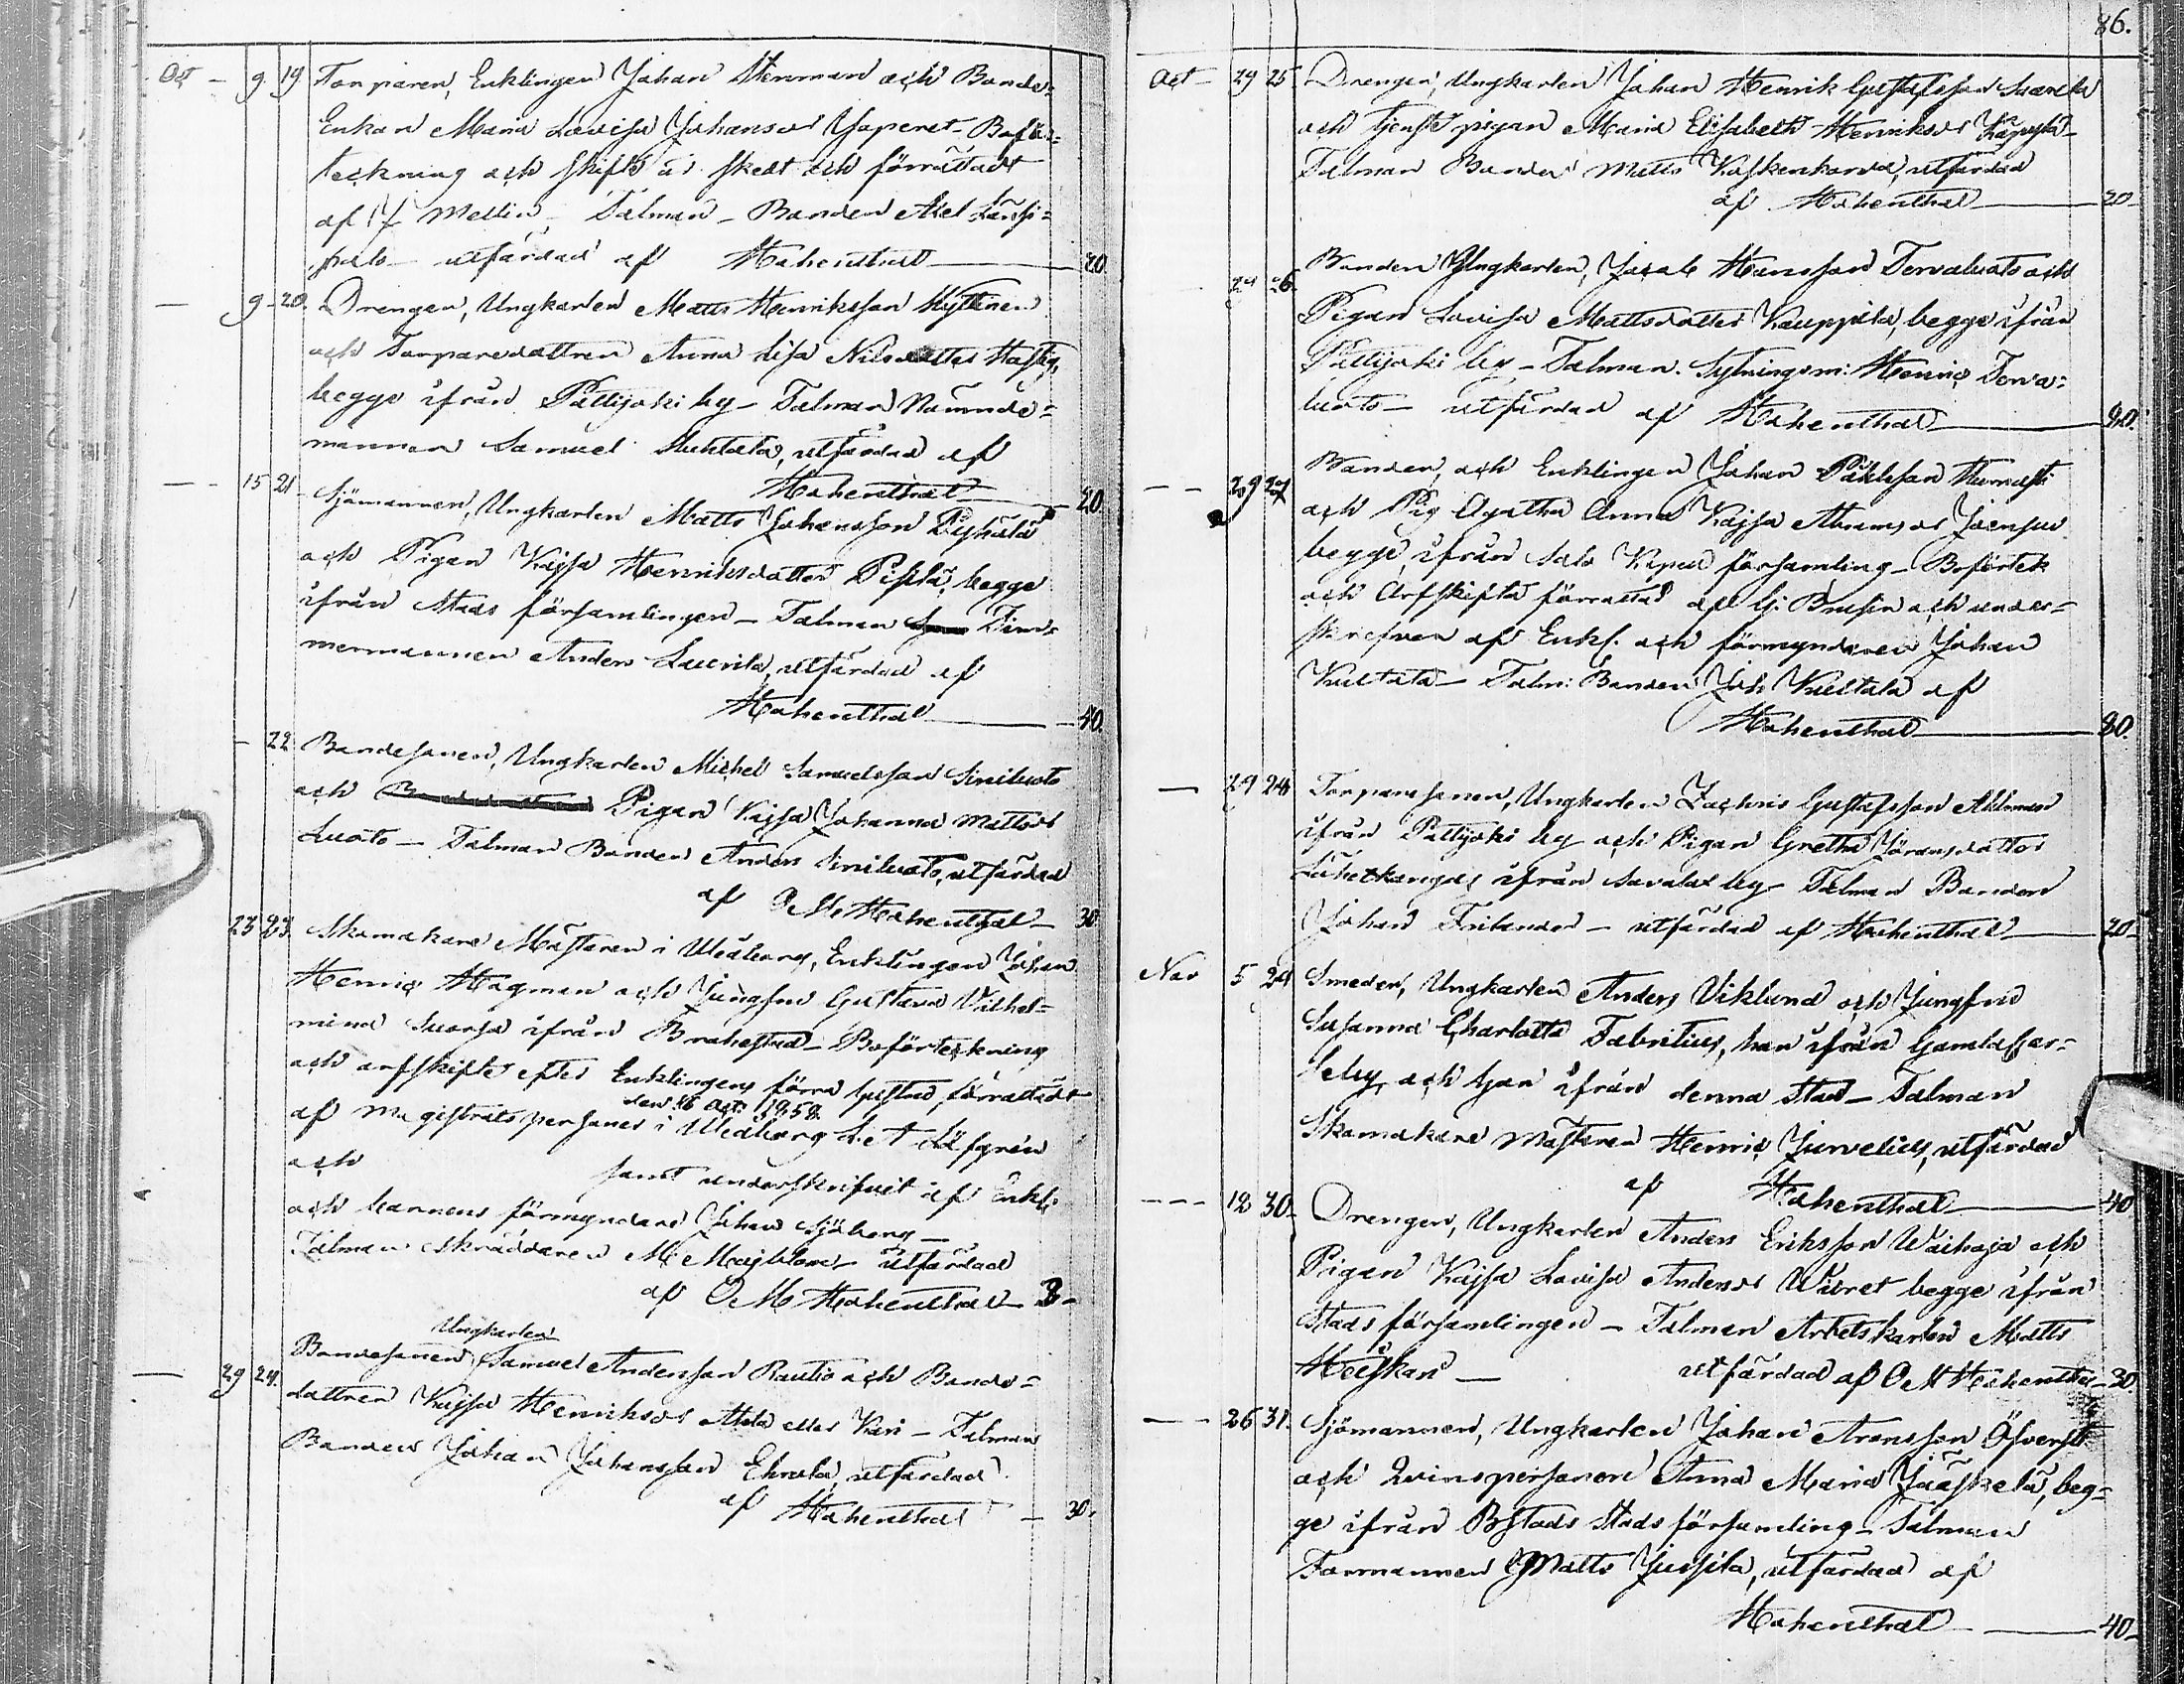 Oct – 9 19 Torparen, Enklingen Johan Stenman och Bonde-
Enkan Maria Lovisa Johansdr Yaperet – Boför-
teckning och skifte är skedt och förrättadt
af J Mellin – Talman – Bonden Axel Länsi-
palo – utfärdad af Hohenthal — 20.
— 9 – 20. Drengen, Ungkarlen Matts Henriksson Kyttinen
och Torparedottren Anna Lisa Nilsdotter Hassig,
begge ifrån Pattijoki by – Talman Nämnde-
mannen Samuel Huhtala, utfärdad af
Hohenthal — 20.
— 15 21 Sjömannen, Ungkarlen Matts Johansson Pyhälä
och Pigan Kajsa Henriksdotter Pislä, begge
ifrån Stads församlingen – Talman Tim-
mermannen Anders Laurila, utfärdad af
Hohenthal — 40.
– 22 Bondesonen, Ungkarlen Michel Samuelsson Siniluoto
och Pigan Kajsa Johanna Mattsdr
Luoto – Talman Bonden Anders Siniluoto, utfärdad
af O M Hohenthal – 30
23 23. Skomakare Mästaren i Uleåborg, Enklingen Johan
Henric Hagman och Jungfru Gustava Vilhel-
mina Suorsa ifrån Brahestad – Boförteckning
och arfskifte efter Enklingens förra hustru, förrättadt
den 16 Oct. 1858.
af Magistratspersoner i Uleåborg L. A Löfgren
och samt underskrifvit af Enkl:
och barnens förmyndare Johan Sjöberg –
Talman skräddaren M. Majblom – utfärdad
af O M Hohenthal – 3 –
Ungkarlen
— 29 24. Bondesonen, Samuel Andersson Rautio och Bonde-
dottren Kajsa Henriksdr Ahola eller Kari – Talman
Bonden Johan Johansson Ehrola, utfärdad
af Hohenthal – 30.
86.
Oct – 29 25 Drengen, Ungkarlen Johan Henrik Gustafsson Saarela
och tjenste pigan Maria Elisabeth Henriksdr
Talman Bonden Matts Koskenkorva, utfärdad
af Hohenthal — 20 –
29 26. Bonden Ungkarlen, Jacob Hansson Tervaluoto och
Pigan Lovisa Mattsdotter Kauppila, begge ifrån
Pattijoki by – Talman. Sytningsm: Henric Terva-
luoto – utfärdad af Hohenthal — 20.
— 29 27 Bonden, och Enklingen Johan Påhlsson
och Pig Agatha Anna Kajsa Abramsdr Joensuu
begge ifrån Salo Kapell församling – Boförtek
och Arfskifte förrättad af G: Brusin och under-
skrefven af Enkl. och förmyndaren Johan
Kultala – Talm: Bonden Joh Kultala af
Hohenthal — 80.
— 29 28 Torparesonen, Ungkarlen Zachris Gustafsson Ahlman
ifrån Pattijoki by och Pigan Gretha Göransdotter
Lähetkangas ifrån Savalax by – Talman Bonden
Johan Frilander – utfärdad af Hohenthal — 20 –
Nov 5 29 Smeden, Ungkarlen Anders Viklund och Jungfru
Susanna Charlotta Fabritius, han ifrån Gamlacar-
leby, och hon ifrån denna Stad – Talman
Skomakare mästaren Henric Jurvelius, utfärdad
af Hohenthal — 40
— 12 30 – Drengen, Ungkarlen Anders Eriksson Waihoja och
Pigan Kajsa Lovisa Andersdr Waret begge ifrån
Stads församlingen – Talman Arbetskarlen Matts
Heiskari — utfärdad af O M Hohenthal – 30.
— 26 31. Sjömannen, Ungkarlen Johan Aronsson Öfverst
och Qvinspersonen Anna Maria Jääskelä, beg-
ge ifrån Bstads Stads församling – Talman
Formannen Matts Jussila, utfärdad af
Hohenthal — 40 –